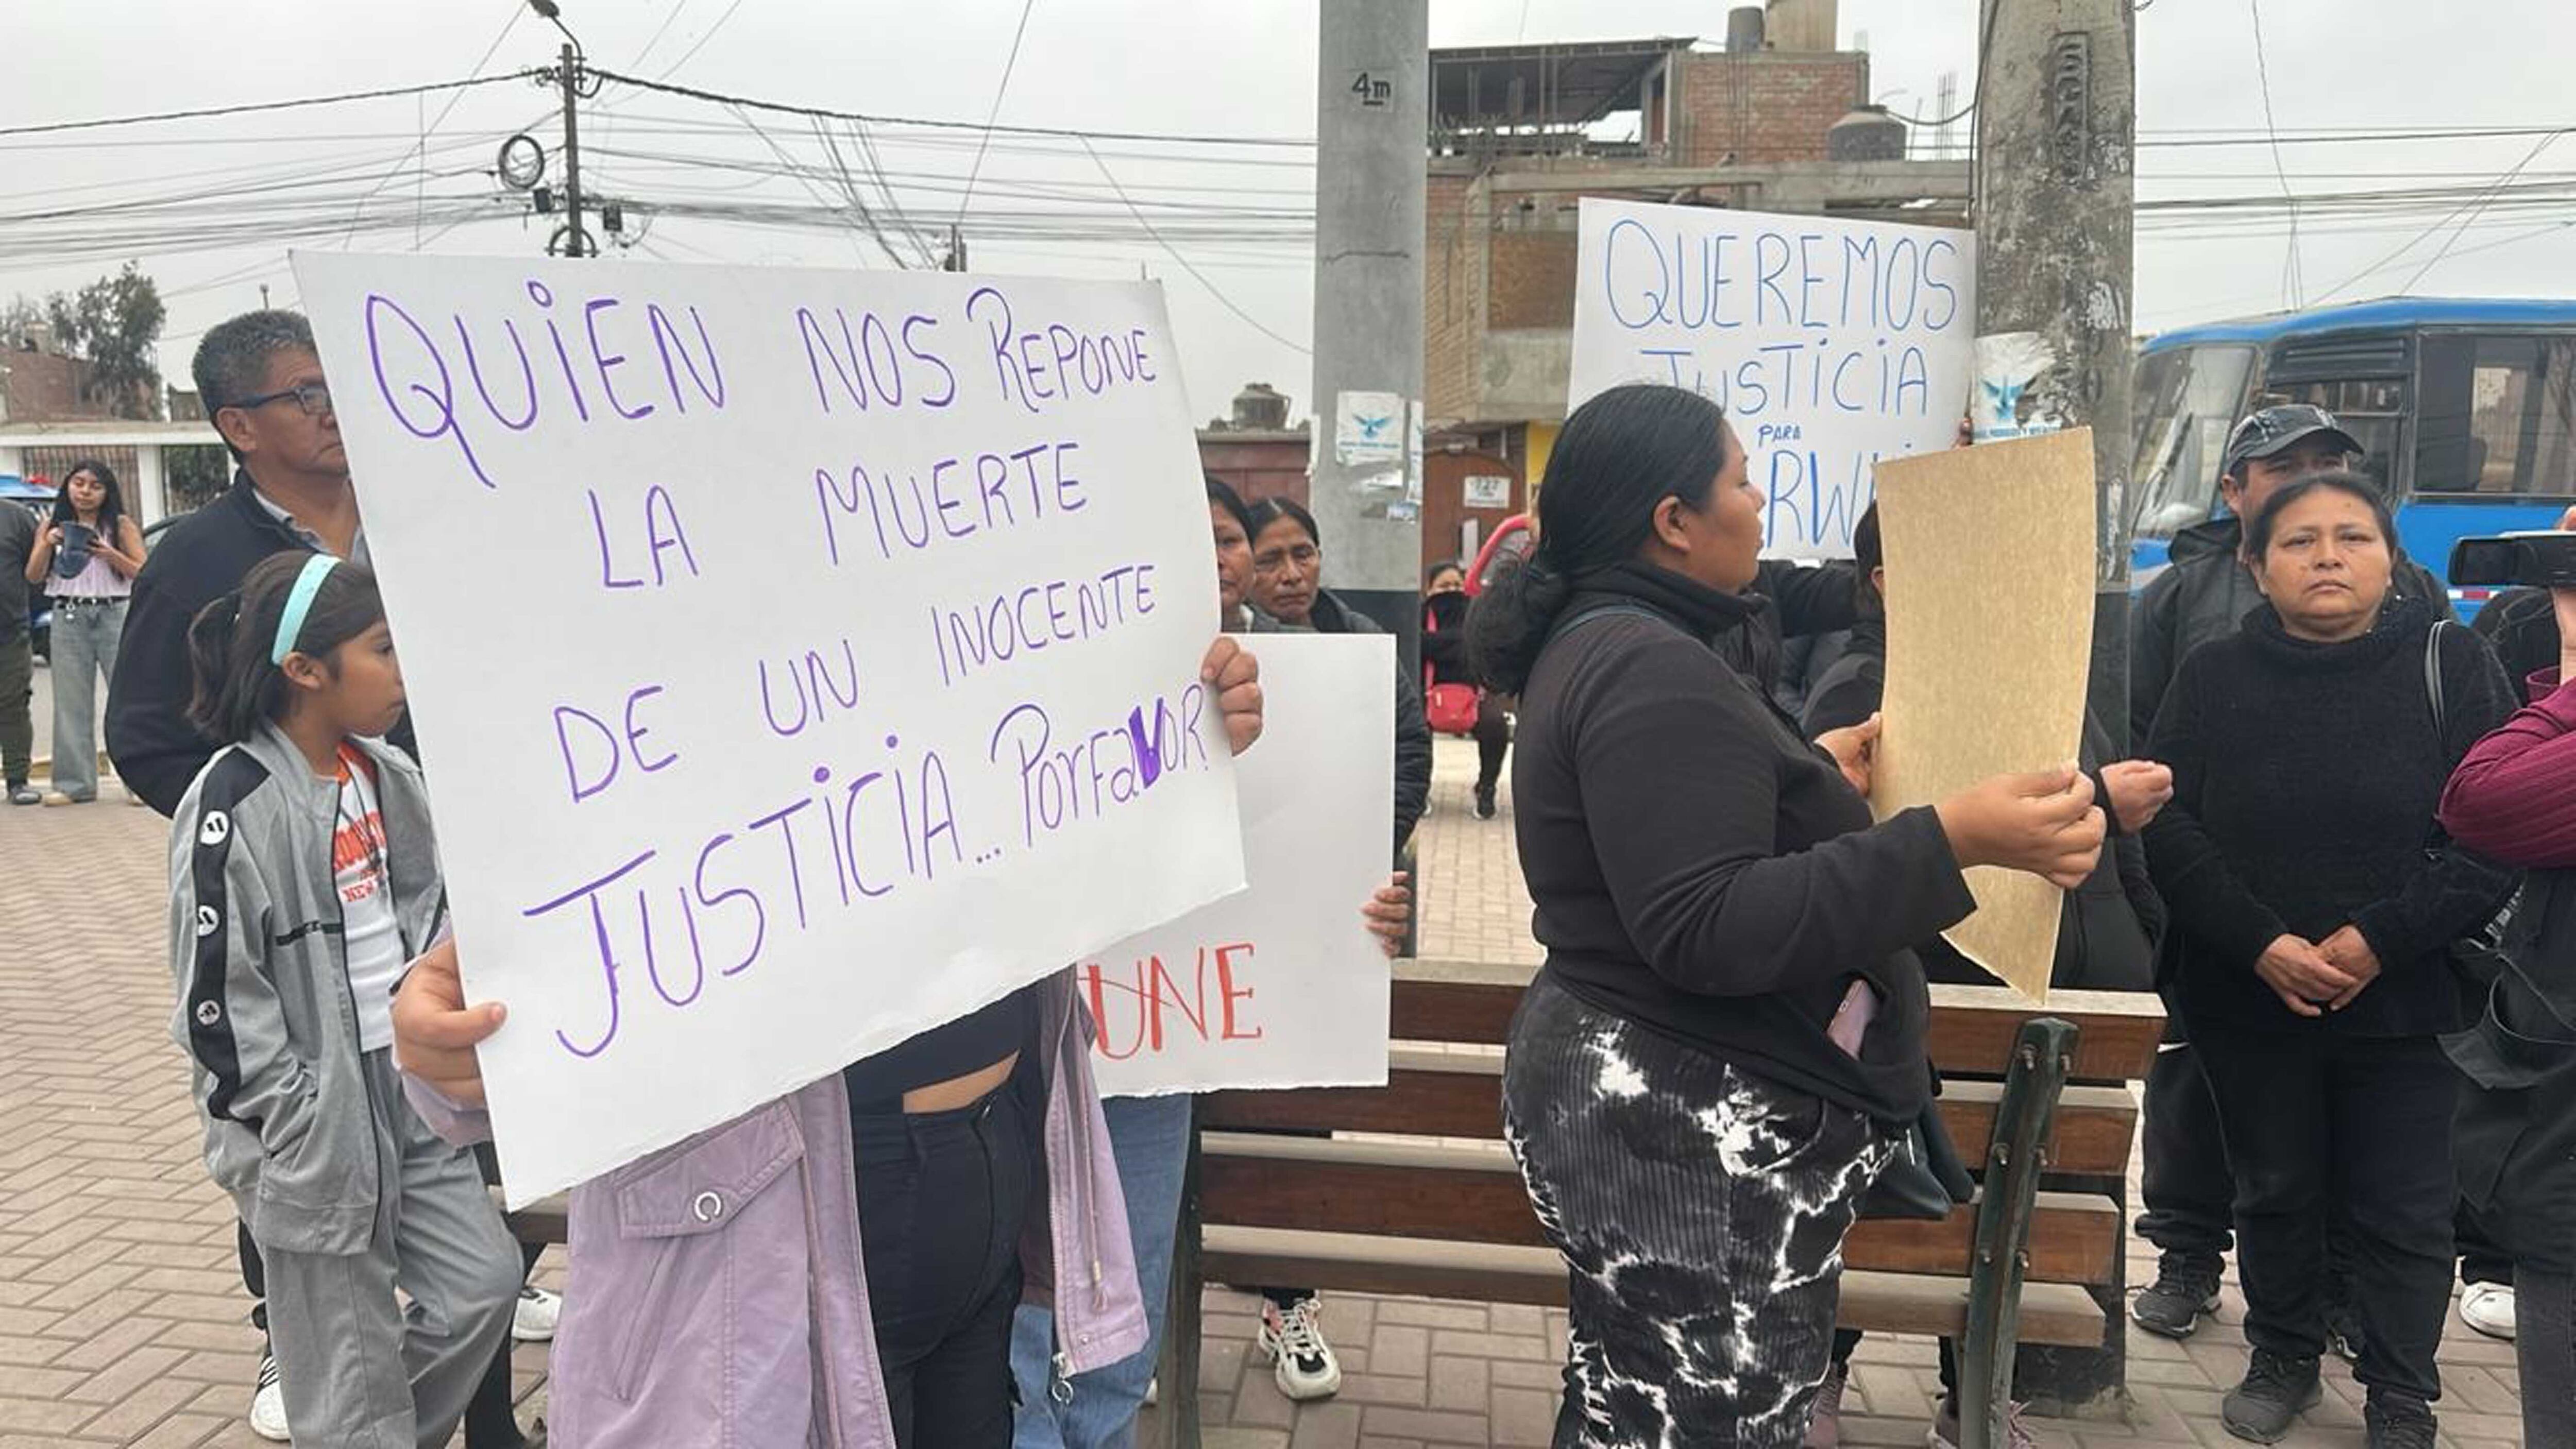 QUIEN NOS REPONE
LA MUERTE
DE UN INOCENTE
JUSTICIA... PORFAVOR
QUEREMOS
JUSTICIA
PARA
UNE
4m